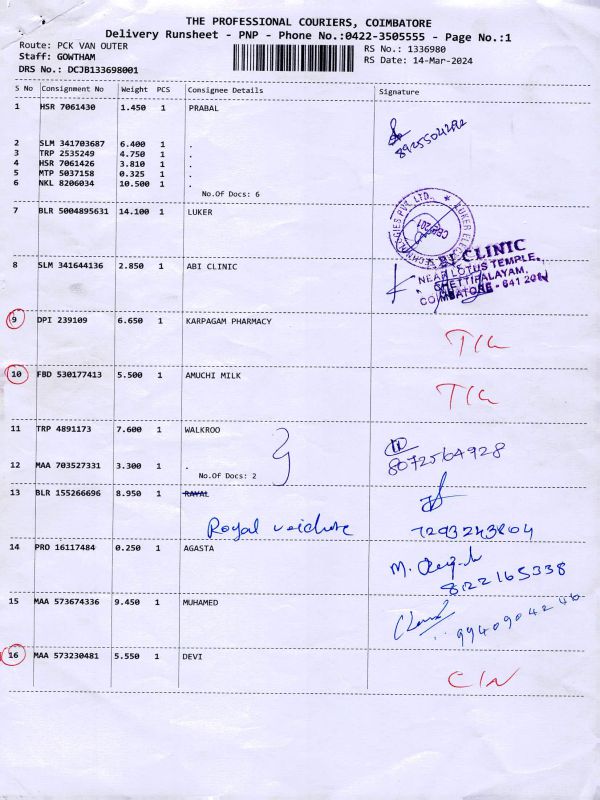 THE PROFESSIONAL COURIERS, COIMBATORE
Delivery Runsheet - PNP - Phone No.:0422-3505555 - Page No.:1
Route: PCK VAN OUTER RS No.: 1336980
Staff: GOWTHAM RS Date: 14-Mar-2024
DRS No.: DCJB133698001
S No Consignment No Weight PCS Consignee Details Signature
1 HSR 7061430 1.450 1 PRABAL
8925504292
2 SLM 341703687 6.400 1 .
3 TRP 2535249 4.750 1 .
4 HSR 7061426 3.810 1 .
5 MTP 5037158 0.325 1 .
6 NKL 8206034 10.500 1 .
No.Of Docs: 6
7 BLR 5004895631 14.100 1 LUKER
8 SLM 341644136 2.850 1 ABI CLINIC
BI CLINIC
NEAR LOTUS TEMPLE,
CHETTIPALAYAM,
COIMBATORE - 641 201
9 DPI 239109 6.650 1 KARPAGAM PHARMACY
10 FBD 530177413 5.500 1 AMUCHI MILK
11 TRP 4891173 7.600 1 WALKROO
8072564928
12 MAA 703527331 3.300 1 .
No.Of Docs: 2
13 BLR 155266696 8.950 1 RAYAL
Royal 7293243804
14 PRO 16117484 0.250 1 AGASTA
M.
8122165338
15 MAA 573674336 9.450 1 MUHAMED
9940904246
16 MAA 573230481 5.550 1 DEVI